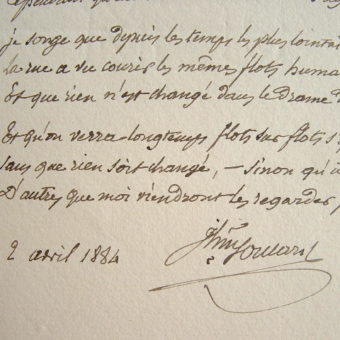 je songe que depuis les temps les plus lointai
la rue a vu courir les mêmes flots huma
Et que rien n'est changé dans le drame d
Et qu'on verra longtemps flots sur flots s'
sans que rien soit changé, — sinon qu'i
D'autres que moi viendront les regarder p
2 avril 1884
Soulary